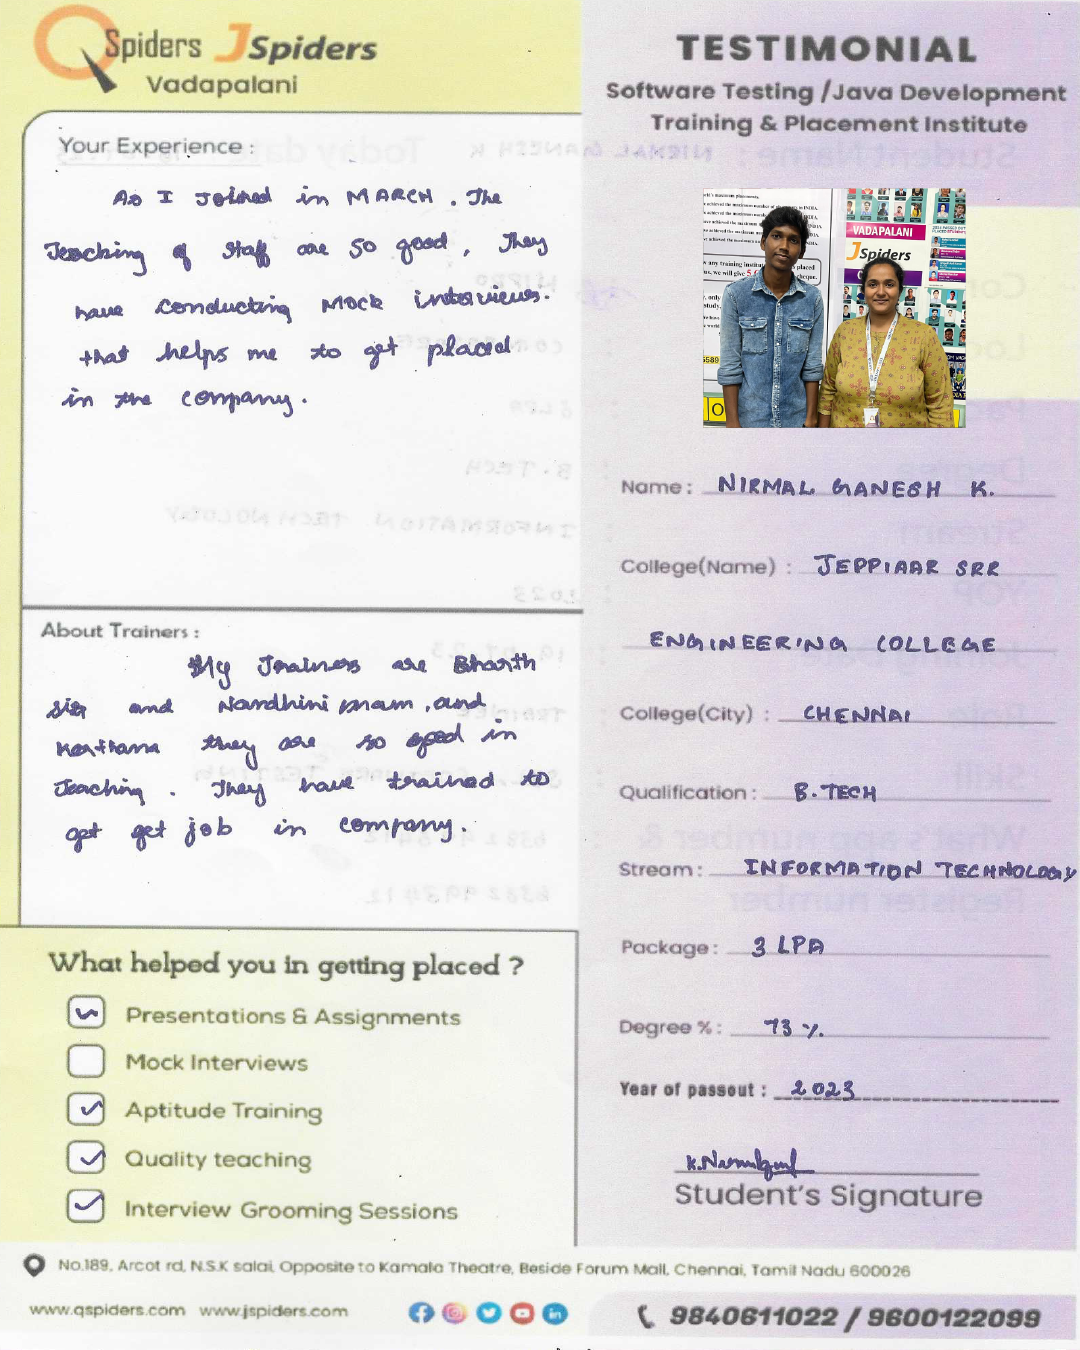 QSpiders JSpiders
Vadapalani
Your Experience :
As I Joined in MARCH . The
Teaching of staff are so good, They
have conducting Mock interviews.
that helps me to get placed
in the company.
About Trainers :
My Trainers are Bharath
sir and Nandhini mam, and
Keerthana they are so good in
Teaching . They have trained to
get job in company.
What helped you in getting placed ?
Presentations & Assignments
Mock Interviews
Aptitude Training
Quality teaching
Interview Grooming Sessions
TESTIMONIAL
Software Testing /Java Development
Training & Placement Institute
VADAPALANI
JSpiders
Name : NIRMAL GANESH K.
College(Name) : JEPPIAAR SRR
ENGINEERING COLLEGE
College(City) : CHENNAI
Qualification : B.TECH
Stream : INFORMATION TECHNOLOGY
Package : 3 LPA
Degree % : 73 %.
Year of passout : 2023
K.Nirmalganesh
Student's Signature
No.189, Arcot rd, N.S.K salai, Opposite to Kamala Theatre, Beside Forum Mall, Chennai, Tamil Nadu 600026
www.qspiders.com www.jspiders.com
9840611022 / 9600122099